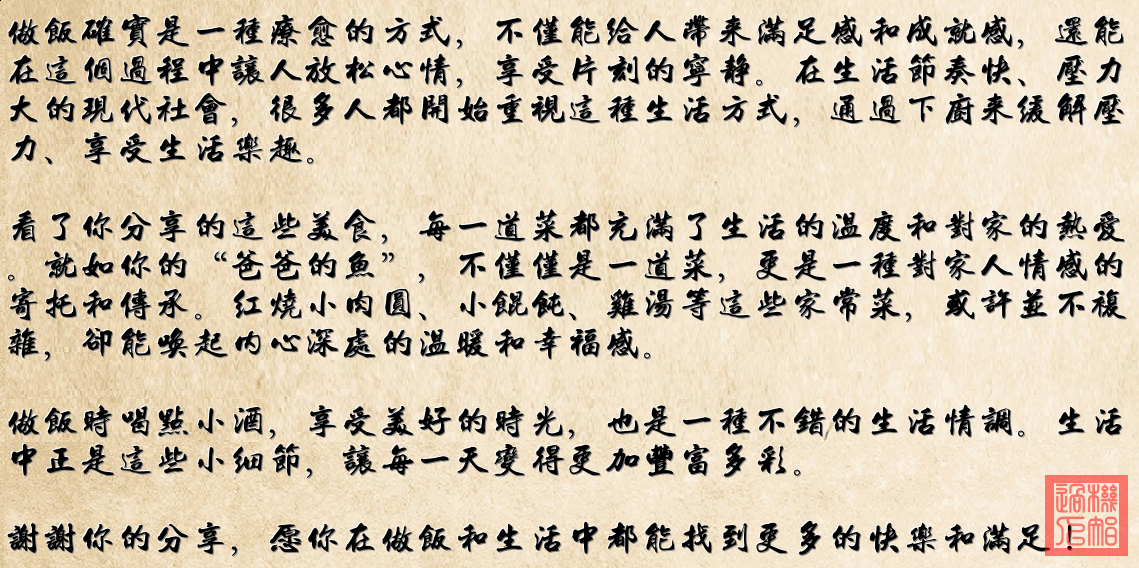 做飯確實是一種療愈的方式，不僅能給人帶来滿足感和成就感，還能
在這個過程中讓人放松心情，享受片刻的寧静。在生活節奏快、壓力
大的現代社會，很多人都開始重視這種生活方式，通過下廚来缓解壓
力、享受生活樂趣。
看了你分享的這些美食，每一道菜都充滿了生活的温度和對家的熱愛
。就如你的“爸爸的魚”，不僅僅是一道菜，更是一種對家人情感的
寄托和傳承。红燒小肉圓、小餛飩、雞湯等這些家常菜，或許並不複
雜，卻能喚起内心深處的温暖和幸福感。
做飯時喝點小酒，享受美好的時光，也是一種不錯的生活情調。生活
中正是這些小细節，讓每一天變得更加豐富多彩。
謝謝你的分享，愿你在做飯和生活中都能找到更多的快樂和滿足！